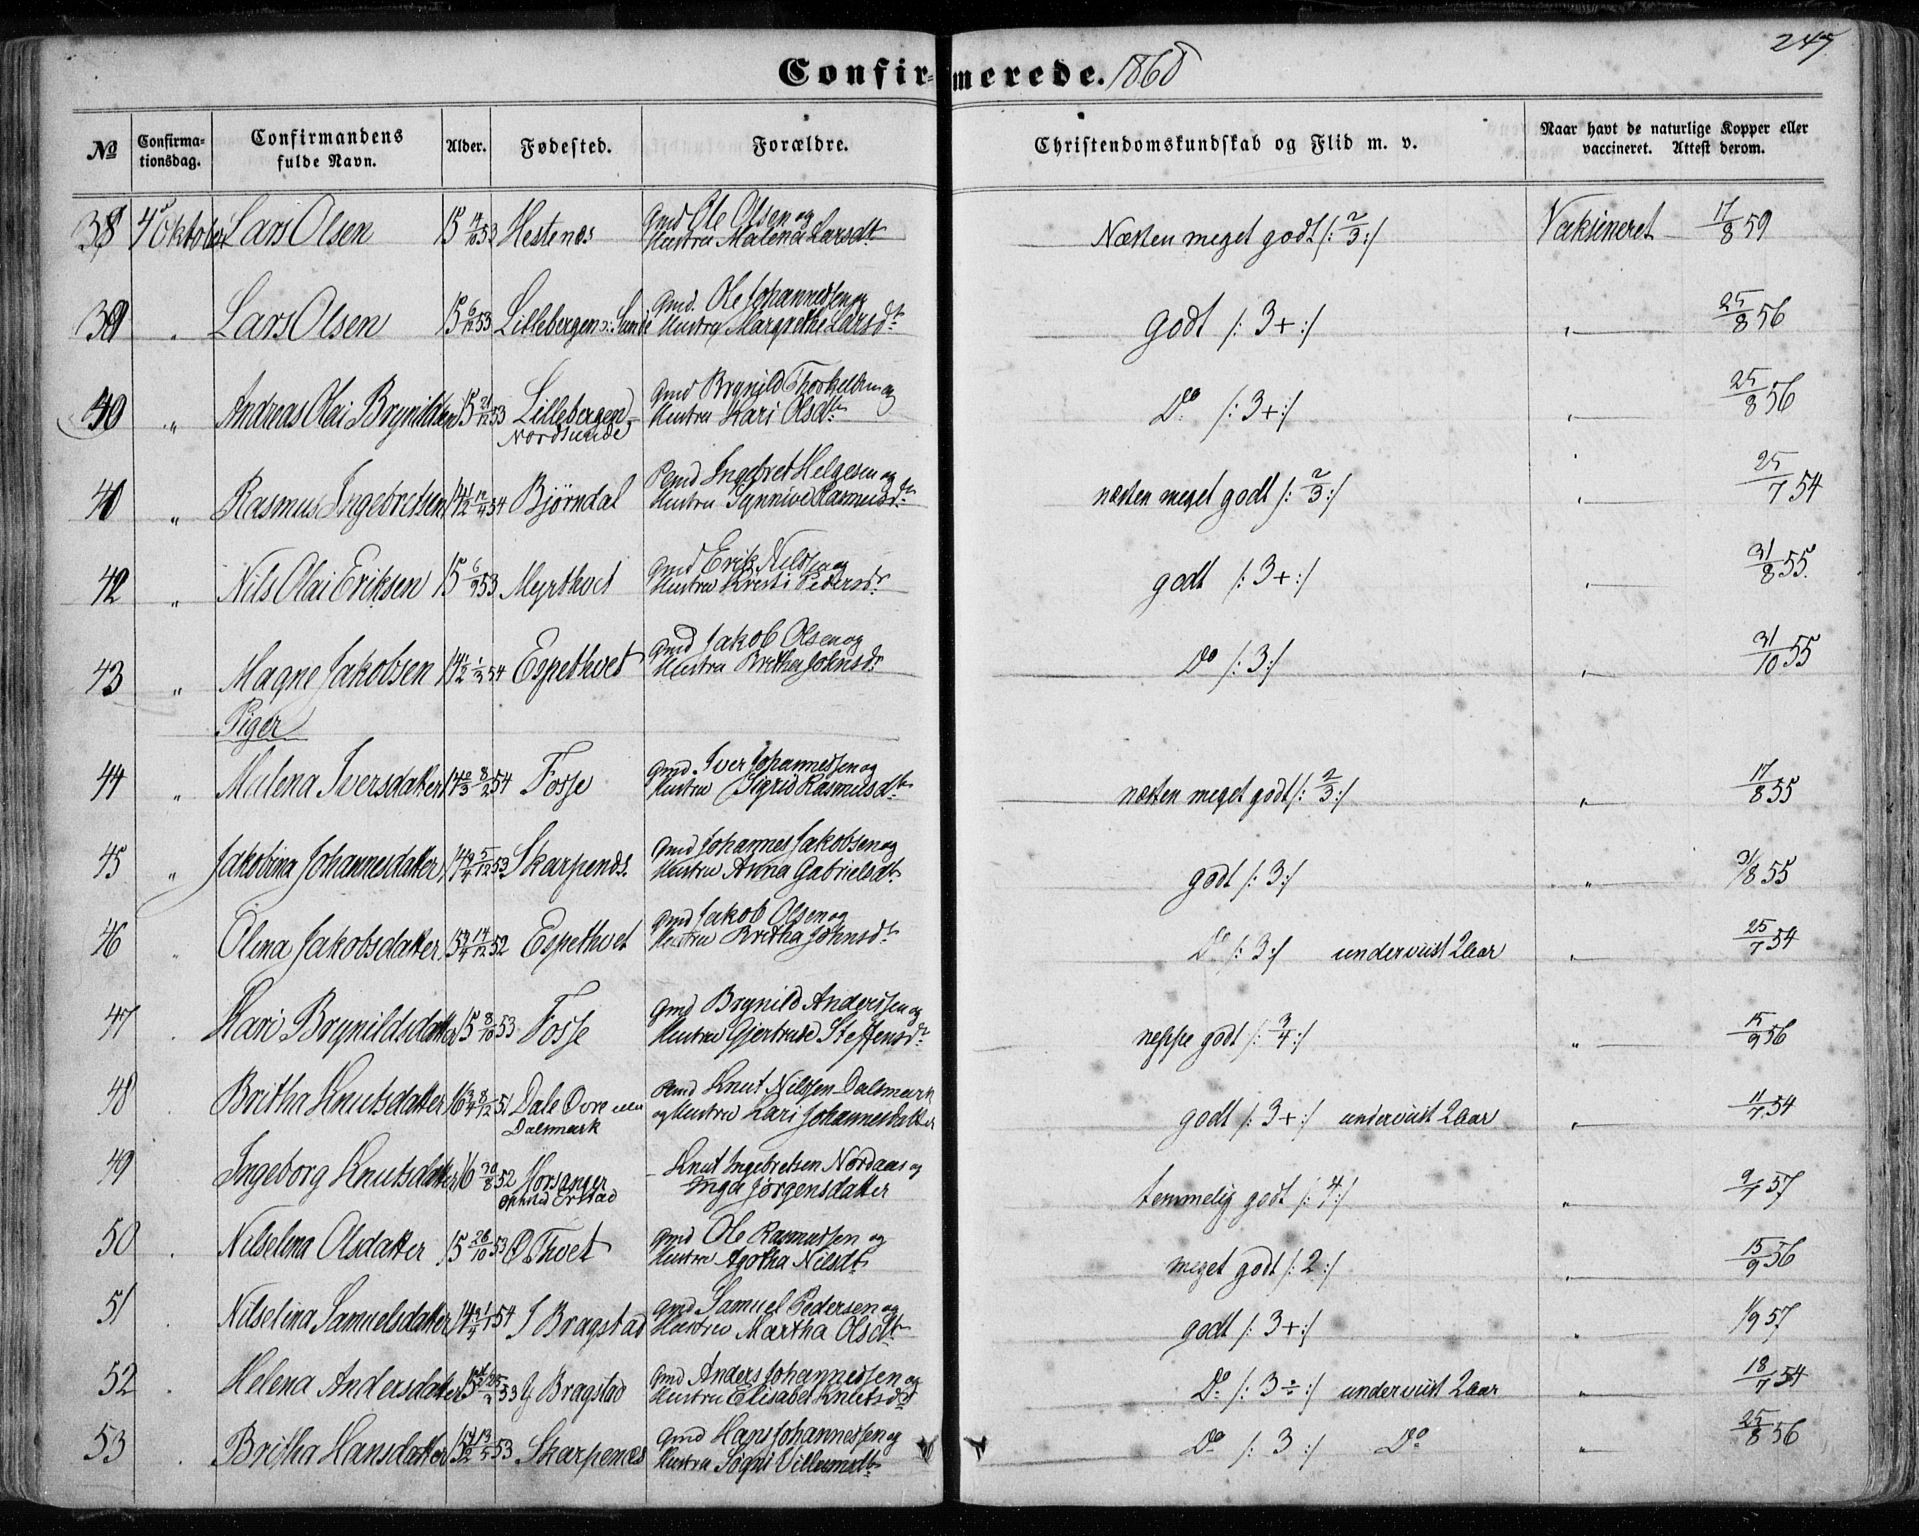 247
Confirmerede. 1868
№ Confirma-tionsdag. Confirmandens fulde Navn. Alder. Fødested. Forældre. Christendomskundskab og Flid m. v. Naar havt de naturlige Kopper eller vaccineret. Attest derom.
38 4de Oktober Lars Olsen 15 14/10 53 Hestenes Gmd Ole Olsen og Hustru Malena Larsdt. Næsten meget godt /: 2/3 :/ Vaksineret 17/8 59
39 „ Lars Olsen 15 6/12 53 Lillebergen i Sunde Gmd. Ole Johannessen og Hustru Margrethe Larsdt. godt /: 3+ :/ „ 25/8 56
40 „ Andreas Olai Brynildsen 15 21/12 53 Lillebergen Nordsunde Gmd Brynild Thorkelsen og Hustru Kari Olsdt. Do /: 3+ :/ „ 25/8 56
41 „ Rasmus Ingebretsen 14 1/2 12/4 54 Bjørndal Pmd Ingebret Helgesen og Hustru Synnive Rasmusdr. næsten meget godt /: 2/3 :/ „ 25/7 54
42 „ Nils Olai Eriksen 15 6/9 53 Myrthvet Gmd Erik Nilssen og Hustru Kristi Pedersdr. godt /: 3+ :/ „ 31/8 55.
43 „ Magne Jakobsen 14 1/2 1/3 54 Espethvet Gmd Jakob Olsen og Hustru Britha Johnsdr. Do /: 3 :/ „ 31/10 55
Piger
44 „ Malena Iversdatter 14 2/3 8/2 54 Fosse Gmd. Iver Johannessen og Hustru Sigrid Rasmusdt. næsten meget godt /: 2/3 :/ „ 17/8 55
45 „ Jakobina Johannesdatter 14 3/4 5/12 53 Skarpenes. Gmd Johannes Jakobsen og Hustru Anna Gabrielsdt. godt /: 3 :/ „ 31/8 55
46 „ Olina Jakobsdatter 15 3/4 14/12 52 Espethvet Gmd Jakob Olsen og Hustru Britha Johnsdt. Do /: 3 :/ underviist 2 Aar „ 25/7 54
47 . Kari Brynildsdatter 15 8/10 53 Fosse Gmd Brynild Anderssen og Hustru Gjertrude Steffensdr. neppe godt /: 3/4 :/ „ 15/9 56
48 . Britha Knutsdatter 16 3/4 8/12 51 Dale Øvre Dalsmark Pmd Knut Nilssen Dalsmark og Hustru Kari Johannesdatter godt /: 3+ :/ underviist 2 Aar „ 11/7 54
49 . Ingeborg Knutsdatter 16 30/8 52 Korsanger Knut Ingebretsen Nordaas og Inga Jørgensdatter temmelig godt /: 4 :/ „ 9/7 57
50 . Nilselena Olsdatter 15 26/10 53 Ø Thvet Gmd Ole Rasmussen og Hustru Agatha Nilsdt. meget godt /: 2 :/ „ 15/9 56
51 Nilselina Samuelsdatter 14 3/4 1/1 54 I Bragstad Gmd Samuel Pedersen og Hustru Martha Olsdt. godt /: 3+ :/ „ 1/9 57
52 . Helena Andersdatter 53 G Bragstad Gmd Anders Johannessen og Hustru Elisabet Knutsd Do /: 3 ÷ :/ underviist 2 Aar „ 18/7 54
53 . Britha Hansdatter 15 1/2 13/5 53 Skarpenes Gmd Hans Johannessen og Hustru Sogni Villumsdt. Do /: 3 :/ Do „ 25/8 56